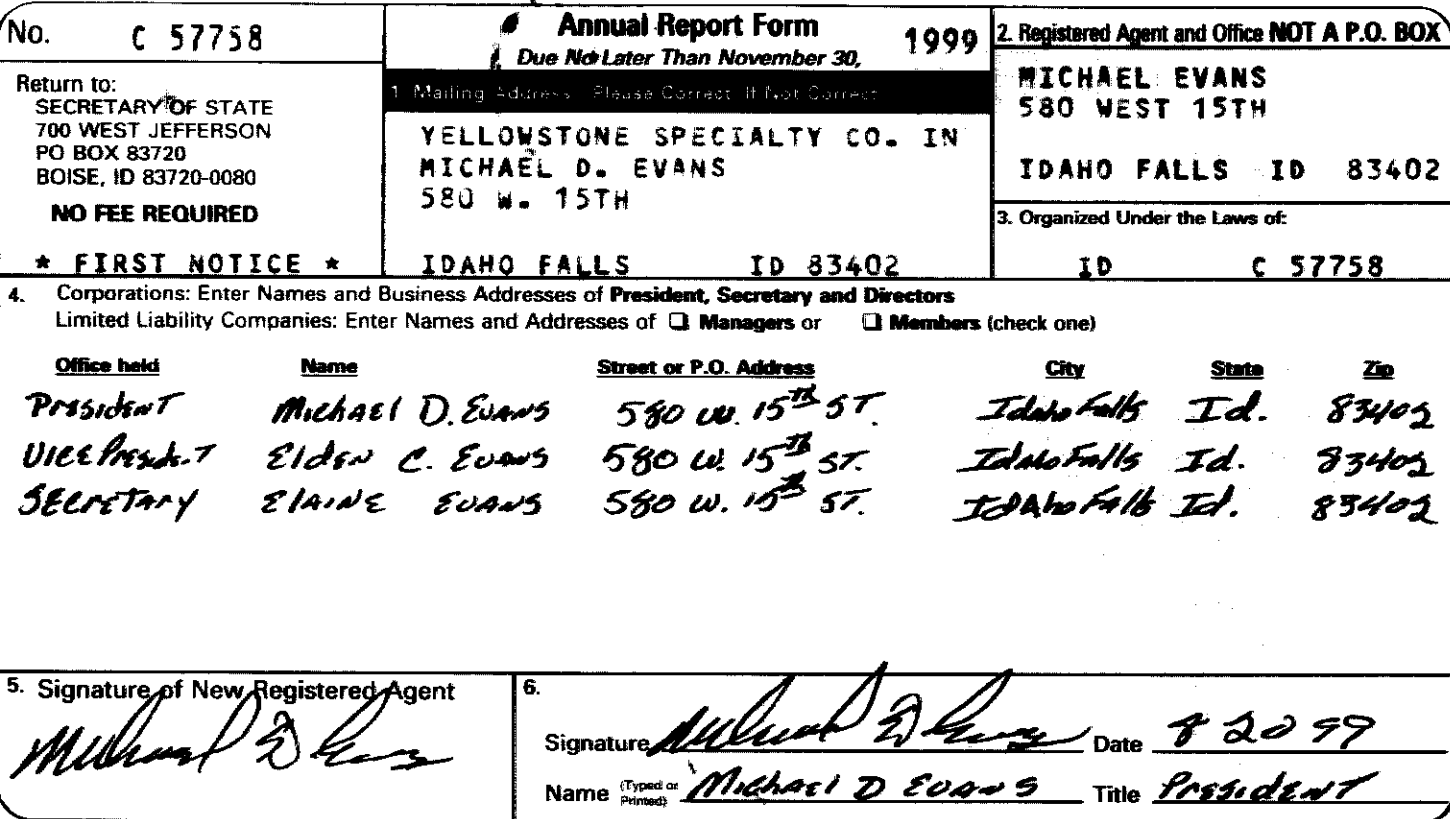 No. C 57758
Return to:
SECRETARY OF STATE
700 WEST JEFFERSON
PO BOX 83720
BOISE, ID 83720-0080
NO FEE REQUIRED
* FIRST NOTICE *
Annual Report Form 1999
Due Not Later Than November 30,
1 Mailing Address Please Correct If Not Correct
YELLOWSTONE SPECIALTY CO. IN
MICHAEL D. EVANS
580 W. 15TH
IDAHO FALLS ID 83402
2. Registered Agent and Office NOT A P.O. BOX
MICHAEL EVANS
580 WEST 15TH
IDAHO FALLS ID 83402
3. Organized Under the Laws of:
ID C 57758
4. Corporations: Enter Names and Business Addresses of President, Secretary and Directors
Limited Liability Companies: Enter Names and Addresses of ❑ Managers or ❑ Members (check one)
Office held Name Street or P.O. Address City State Zip
President Michael D. Evans 580 W. 15th ST. Idaho Falls Id. 83402
Vice President Elden C. Evans 580 W. 15th ST. Idaho Falls Id. 83402
Secretary Elaine Evans 580 W. 15th ST. Idaho Falls Id. 83402
5. Signature of New Registered Agent
Michael D Evans
6.
Signature Michael D Evans Date 8 20 99
Name (Typed or Printed) Michael D Evans Title President